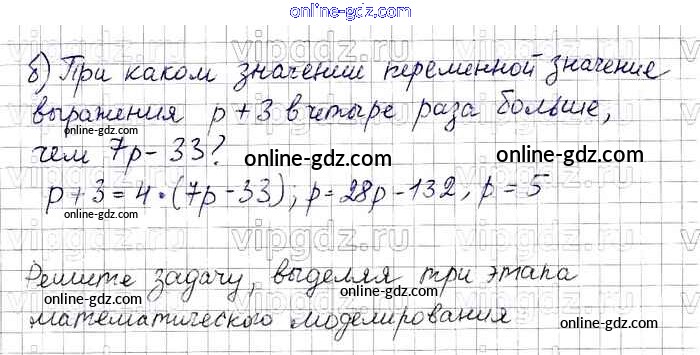 online-gdz.com
б) При каком значении переменной значение
выражения p + 3 в четыре раза больше,
online-gdz.com online-gdz.com
чем 7p - 33?
online-gdz.com online-gdz.com
p + 3 = 4 · (7p - 33); p = 28p - 132, p = 5
online-gdz.com
Решите задачу, выделяя три этапа
online-gdz.com online-gdz.com online-gdz.com
математического моделирования
online-gdz.com online-gdz.com